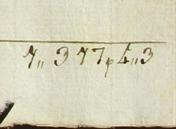 7,, 377 p 4,, 3